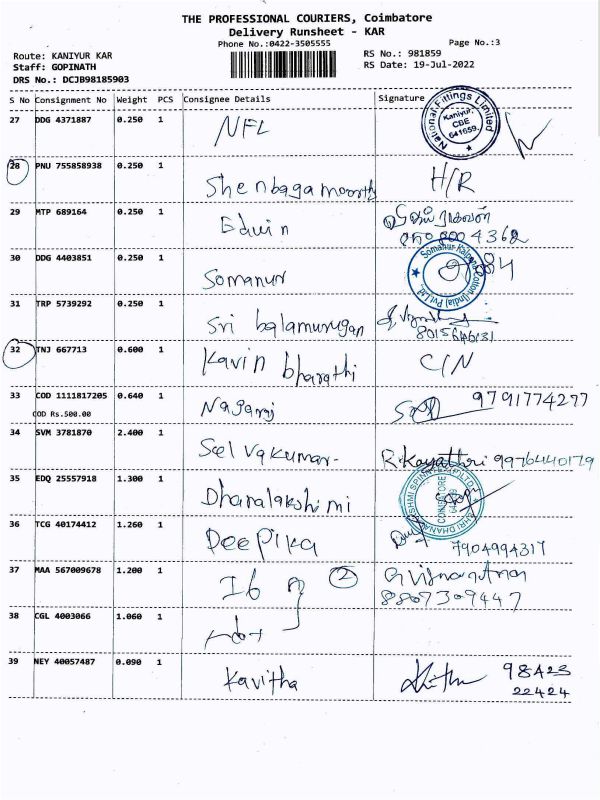 THE PROFESSIONAL COURIERS, Coimbatore
Delivery Runsheet - KAR
Phone No.:0422-3505555
Page No.:3
Route: KANIYUR KAR
RS No.: 981859
Staff: GOPINATH
RS Date: 19-Jul-2022
DRS No.: DCJB98185903
S No Consignment No Weight PCS Consignee Details Signature
27 DDG 4371887 0.250 1 NFL
National Fittings Limited
Kaniyur,
CBE
641659.
28 PNU 755858938 0.250 1 Shenbagamoorthy H/R
29 MTP 689164 0.250 1 Edwin
30 DDG 4403851 0.250 1 Somanur
Somanur Kalpana Cotton (India) Pvt. Ltd.,
31 TRP 5739292 0.250 1 Sri balamurugan
8015646131
32 TNJ 667713 0.600 1 Kavin bharathi C/N
33 COD 1111817205 0.640 1 Nagaraj 9791774277
COD Rs.500.00
34 SVM 3781870 2.400 1 Selvakumar R.Kayathri 9976440179
35 EDQ 25557918 1.300 1 Dhanalakshimi
COIMBATORE
36 TCG 40174412 1.260 1 Deepika
7904994317
37 MAA 567009678 1.200 1 Ib 2
8807309447
38 CGL 4003066 1.060 1
39 NEY 40057487 0.090 1 Kavitha 98423
22424